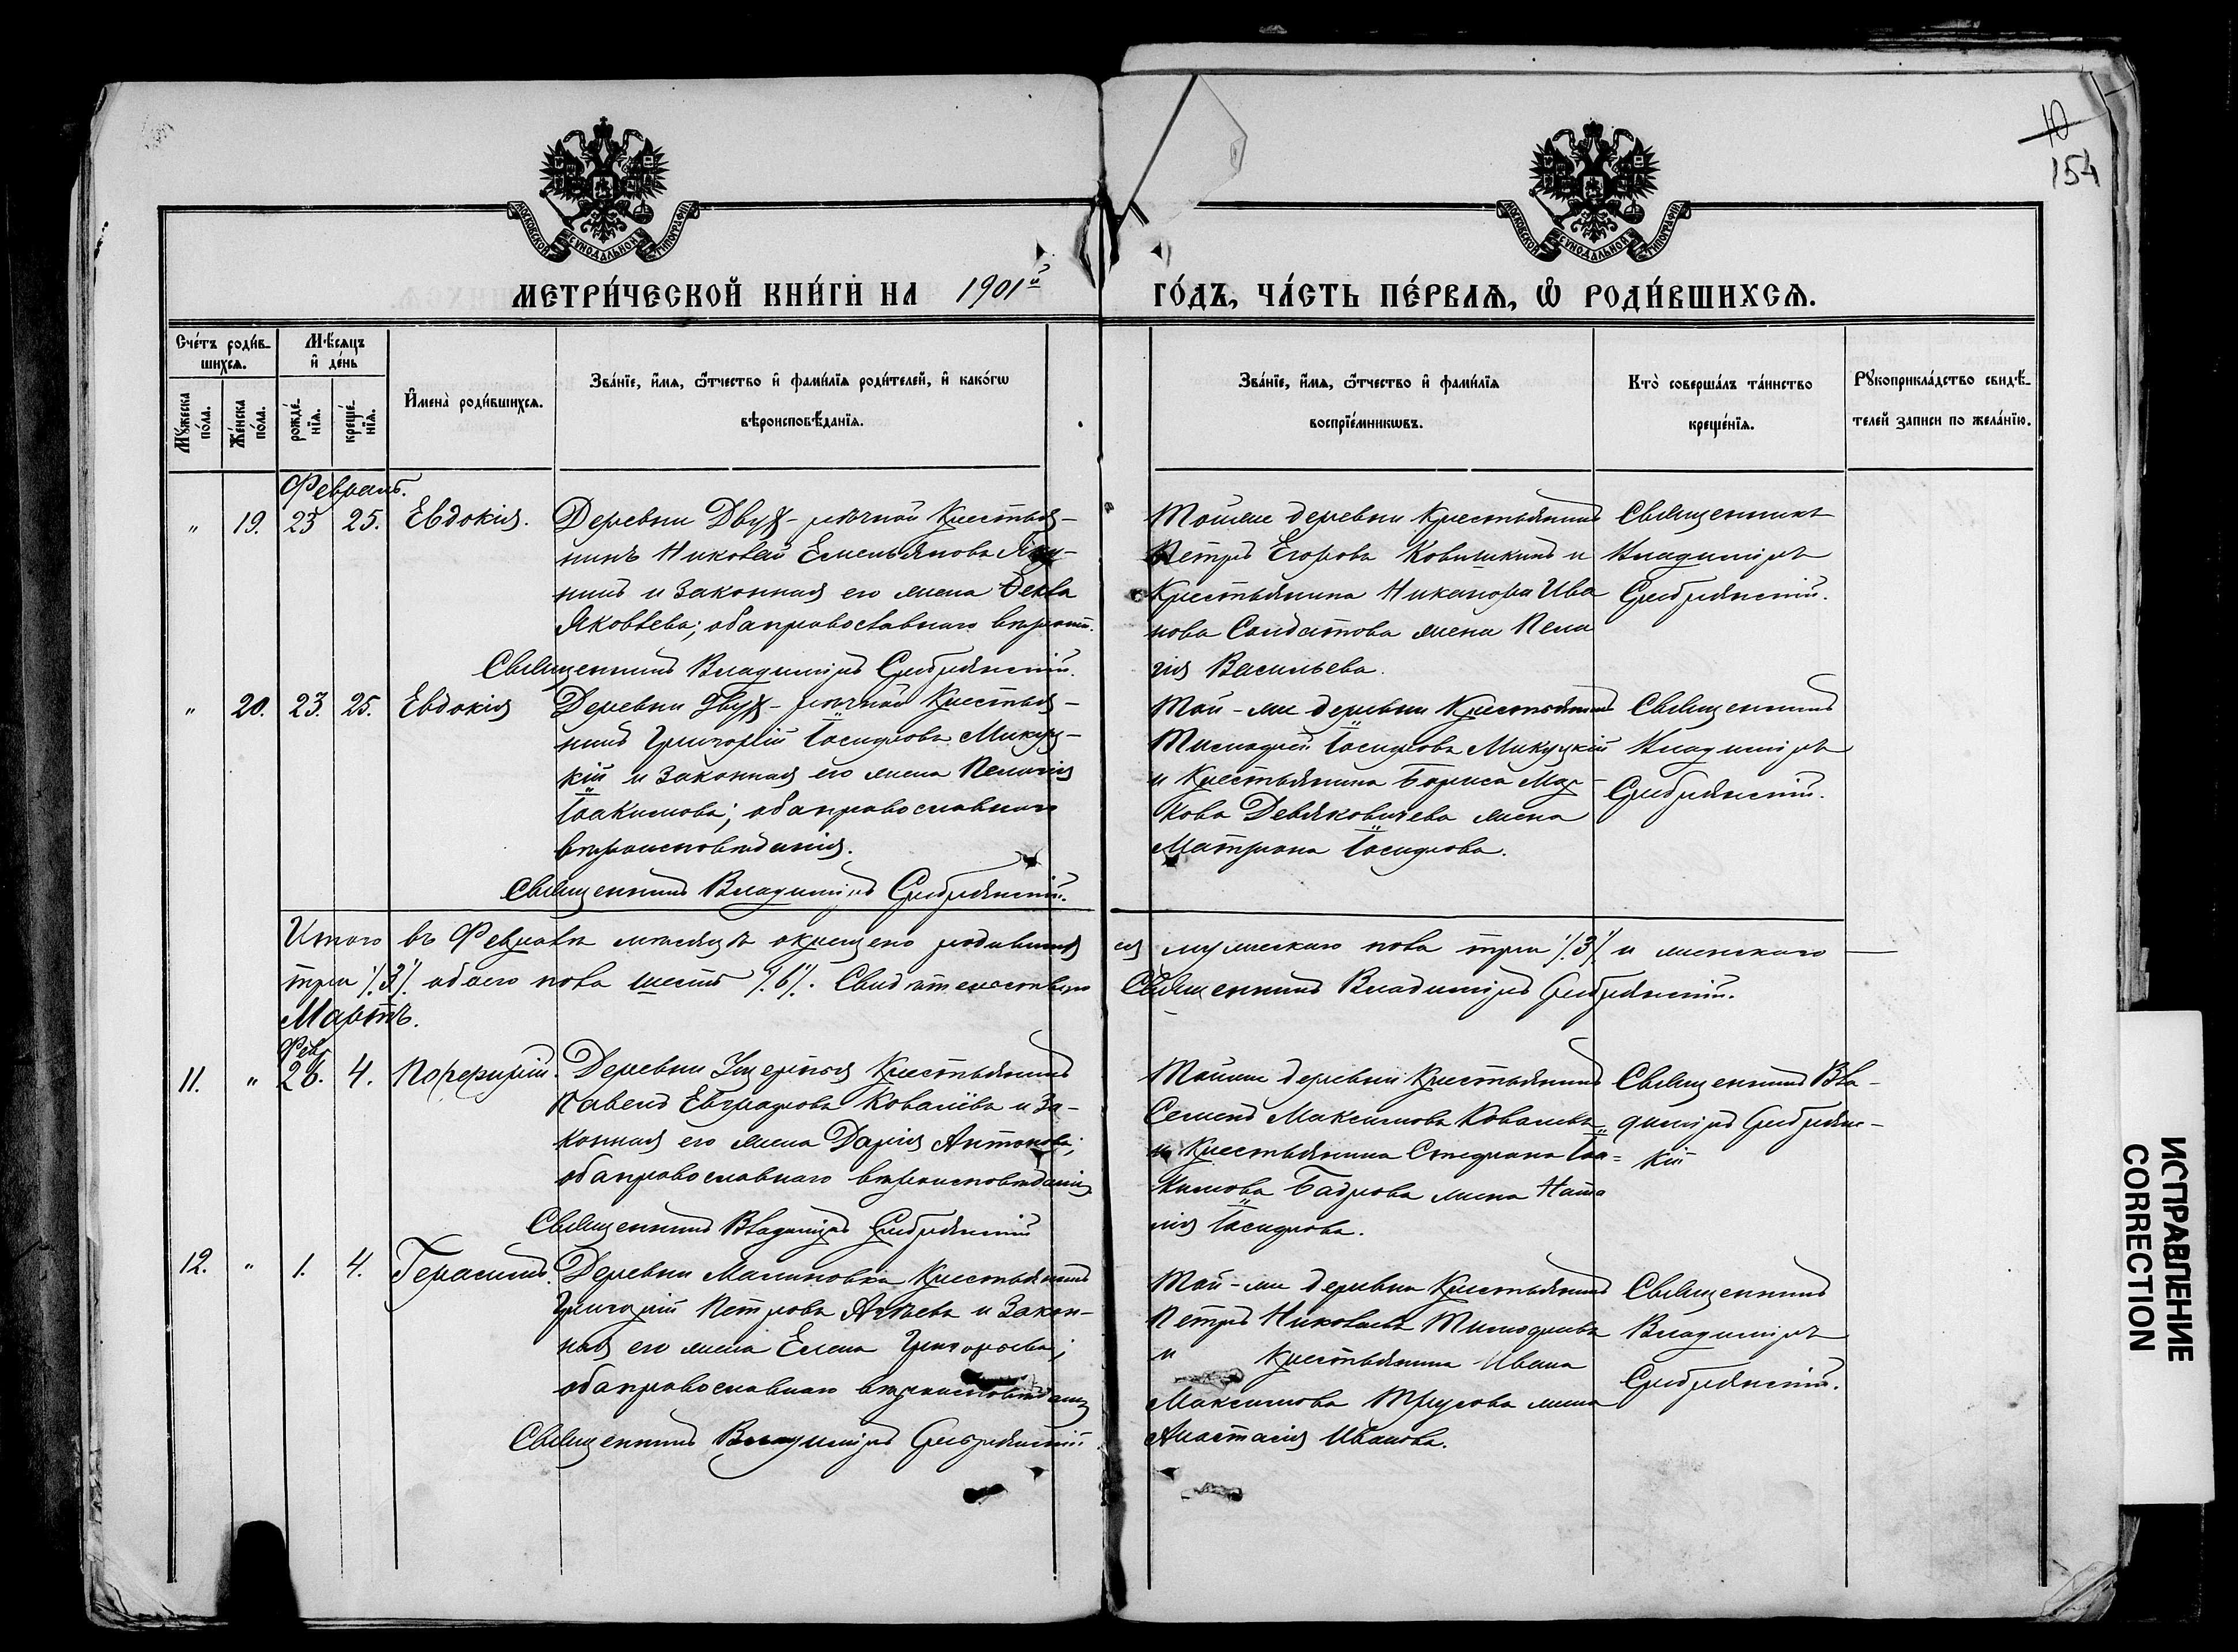 10
154
МОСКОВСКОЙ СѴНОДАЛЬНОЙ ТИПОГРАФІИ
МОСКОВСКОЙ СѴНОДАЛЬНОЙ ТИПОГРАФІИ
МЕТРИ́ЧЕСКОЙ КНИ́ГИ НА 1901й ГО́ДЪ, ЧА́СТЬ ПЕ́РВАѦ, Ѿ РОДИ́ВШИХСѦ.
Сче́тъ роди́вшихсѧ.
Мꙋ́жеска по́ла.
Же́нска по́ла.
Мѣ́сѧцъ и҆ де́нь
рожде́нїѧ.
креще́нїѧ.
И҆мена̀ роди́вшихсѧ.
Зва́нїе, и҆́мѧ, ѻ҆́тчество и҆ фами́лїѧ роди́телей, и҆ како́гѡ
вѣроисповѣ́данїѧ.
Зва́нїе, и҆́мѧ, ѻ҆́тчество и҆ фами́лїѧ
воспрїе́мникѡвъ.
Кто̀ соверша́лъ та́инство
креще́нїѧ.
Рꙋкоприкла́дство свидѣ́-
телей записи по жела́нїю.
Февраль.
" 19. 23 25. Евдокія.
Деревни Двух-рѣчной Крестья-
нинъ Николай Емельяновъ
нинъ и законная его жена Ѳекла
Яковлева; оба православнаго вѣроисп.
Священникъ Владиміръ Серебрянскій.
Тойже деревни Крестьянинъ
Петръ Егоровъ Ковшикинъ и
Крестьянина Никанора Ива
нова Солдатова жена Пела
гія Васильева.
Священникъ
Владиміръ
Серебрянскій.
" 20. 23. 25. Евдокія
Деревни Двух-рѣчной Крестья-
нинъ Григорій Іосифовъ Микуц-
кій и законная его жена Пелагія
Іоакимова; оба православнаго
вѣроисповѣданія.
Священникъ Владиміръ Серебрянскій.
Той-же деревни Крестьянинъ
Тимофей Іосифовъ Микуцкій
и Крестьянина Бориса Мар-
кова Девяковичева жена
Матрона Іосифова.
Священникъ
Владиміръ
Серебрянскій.
Итого въ Февралѣ мѣсяцѣ окрещено родившихся мужескаго пола три /3/ и женскаго
три /3/ обоего пола шесть /6/. Свидѣтельствую Священникъ Владиміръ Серебрянскій.
Мартъ.
Февр.
11. " 26. 4. Порфирій.
Деревни Ущерпья Крестьянинъ
Павелъ Евграфовъ Ковалёвъ и за-
конная его жена Дарія Антонова;
оба православнаго вѣроисповѣданія
Священникъ Владиміръ Серебрянскій
Тойже деревни Крестьянинъ
Семенъ Максимовъ Ковалевъ
и Крестьянина Стефана Іоа-
кимова Бадюова жена Ната
лія Іосифова.
Священникъ Вла-
диміръ Серебрянс-
кій
12. " 1. 4. Герасимъ.
Деревни Малиновка Крестьянинъ
Григорій Петровъ Авдѣевъ и закон-
ная его жена Елена Григорьева;
оба православнаго вѣроисповѣданія
Священникъ Владиміръ Серебрянскій
Той-же деревни Крестьянинъ
Петръ Николаевъ Тимофѣевъ
и Крестьянина Ивана
Максимова Трусова жена
Анастасія Иванова.
Священникъ
Владиміръ
Серебрянскій.
ИСПРАВЛЕНИЕ
CORRECTION